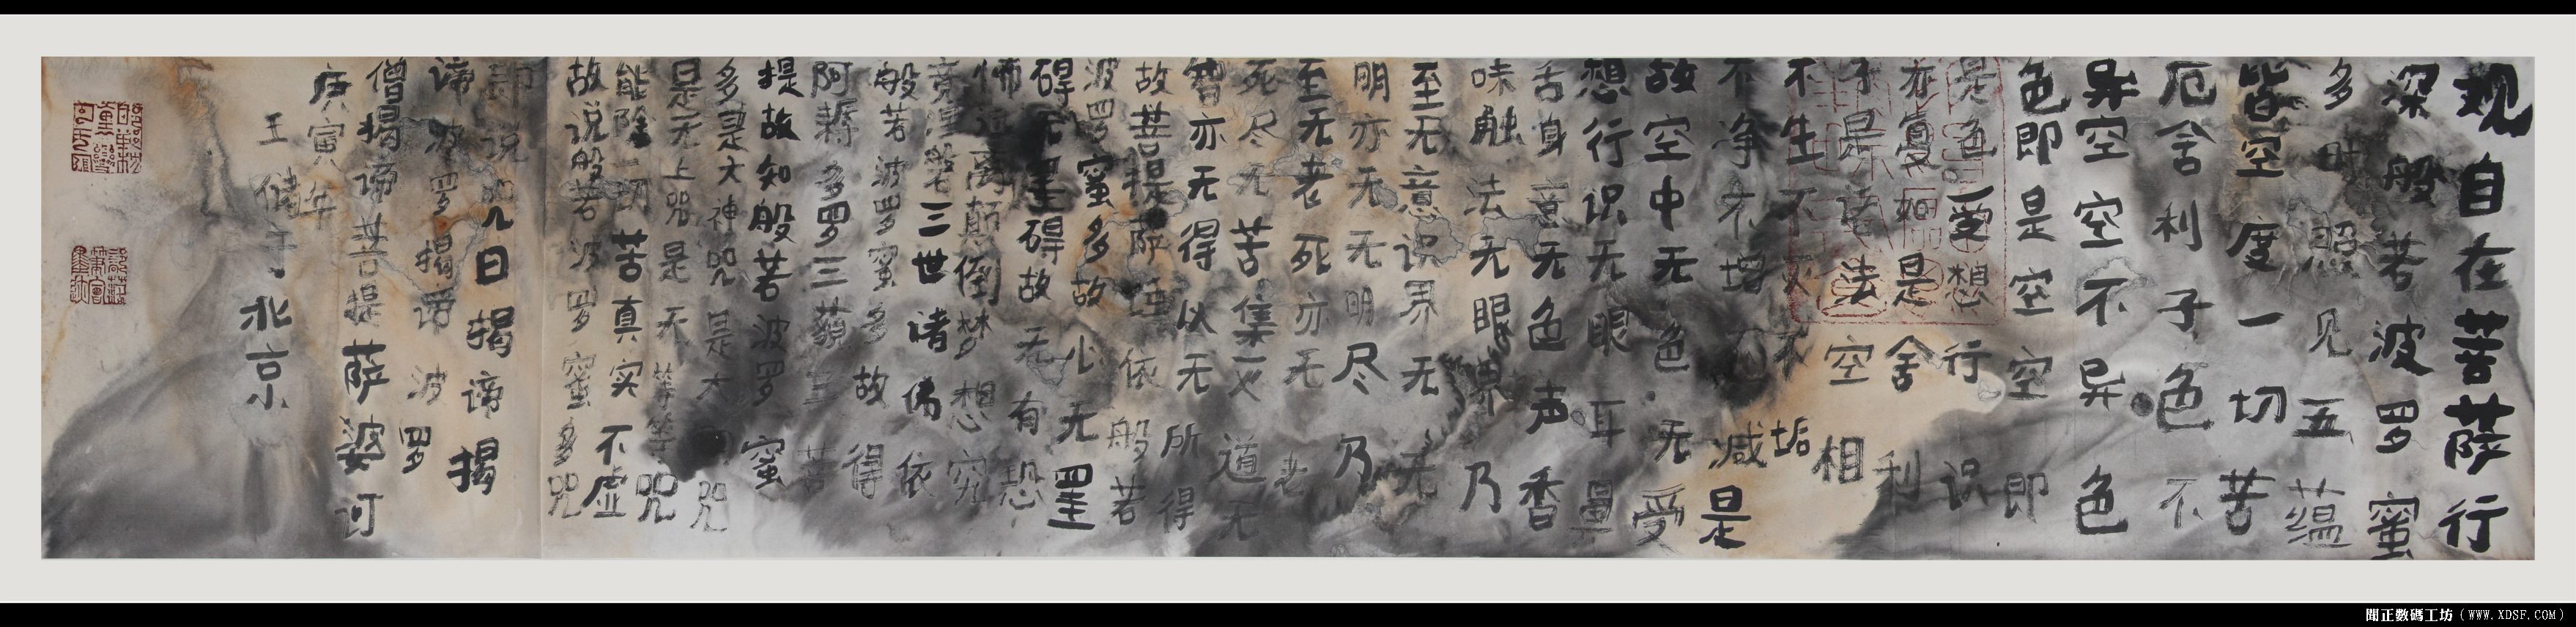 观自在菩萨行
深般若波罗蜜
多时照见五蕴
皆空度一切苦
厄舍利子色不
异空空不异色
色即是空空即
是色受想行识
亦复如是舍利
子是诸法空相
不生不灭不垢
不净不增不减是
故空中无色无受
想行识无眼耳鼻
舌身意无色声香
味触法无眼界乃
至无意识界无无
明亦无无明尽乃
至无老死亦无老
死尽无苦集灭道无
智亦无得以无所得
故菩提萨埵依般若
波罗蜜多故心无罣
碍无罣碍故无有恐
怖远离颠倒梦想究
竟涅槃三世诸佛依
般若波罗蜜多故得
阿耨多罗三藐三菩
提故知般若波罗蜜
多是大神咒是大明咒
是无上咒是无等等咒
能除一切苦真实不虚
故说般若波罗蜜多咒
即说咒曰揭谛揭
谛波罗揭谛波罗
僧揭谛菩提萨婆诃
庚寅年
王儲于北京
聞正數碼工坊（WWW.XDSF.COM）